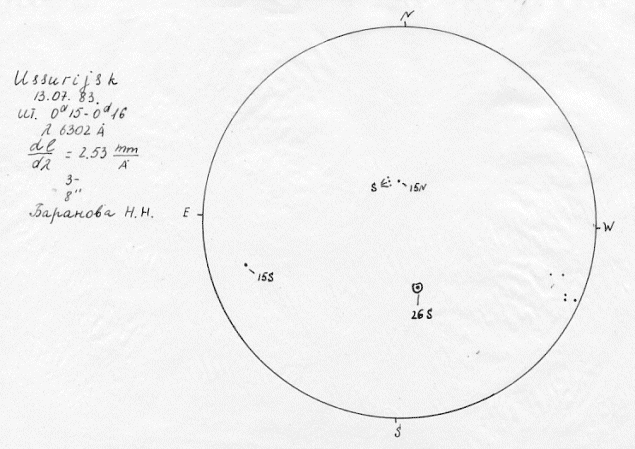 Ussurijsk
13.07.83.
UT. 0ᵈ15-0ᵈ16
λ 6302 Å
dl/dλ = 2.53 mm/Å
3-
8"
Баранова Н.Н.
N
S
15N
E
W
15S
26S
S